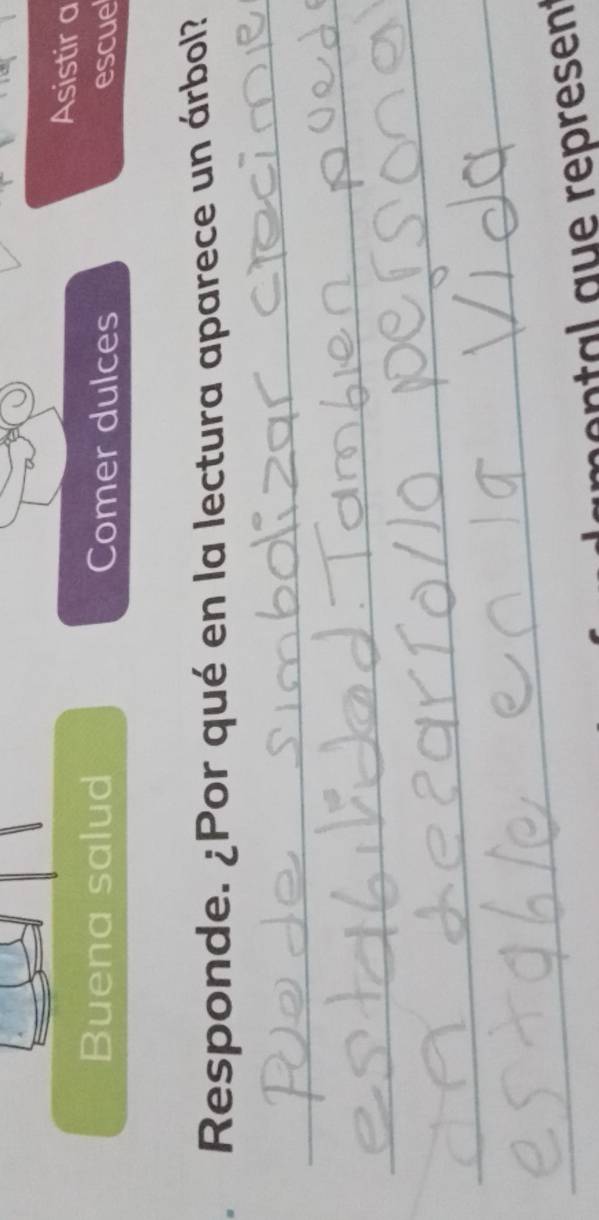 Asistir a
escue
Buena salud
Comer dulces
Responde. ¿Por qué en la lectura aparece un árbol?
Puede simbolizar crecimie
estabilidad. Tambien pued
un desarrollo persona
estable en la vida
damental que represent